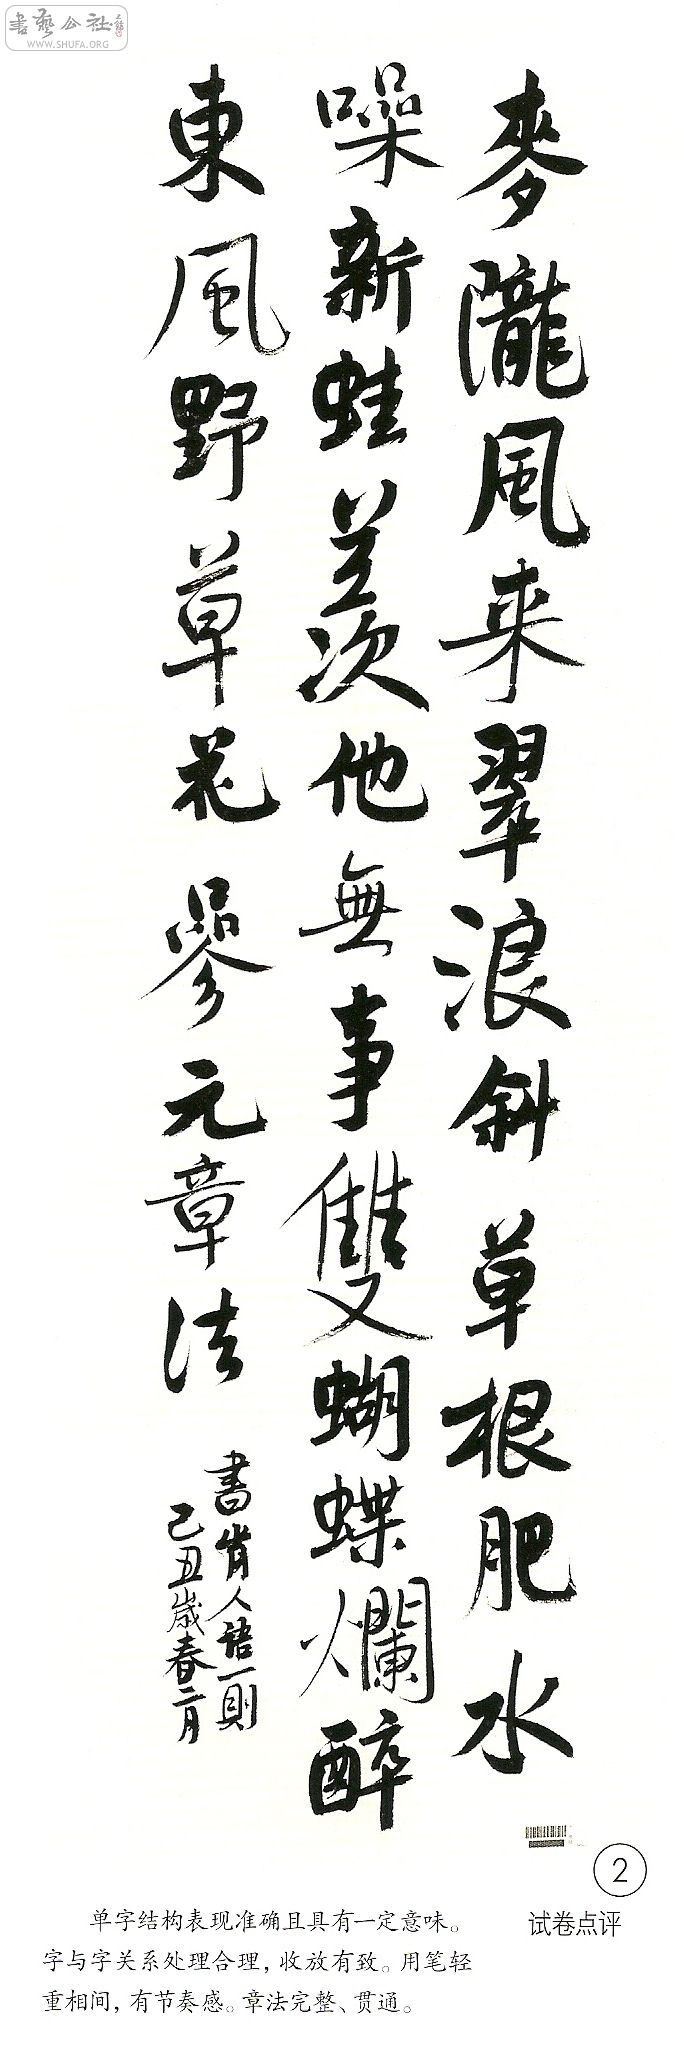 書藝公社
WWW.SHUFA.ORG
麥隴風来翠浪斜草根肥水
噪新蛙羡他無事雙蝴蝶爛醉
東風野草花 參元章法
書肯人語一則
己丑歲春二月
2
试卷点评
单字结构表现准确且具有一定意味。
字与字关系处理合理，收放有致。用笔轻
重相间，有节奏感。章法完整、贯通。